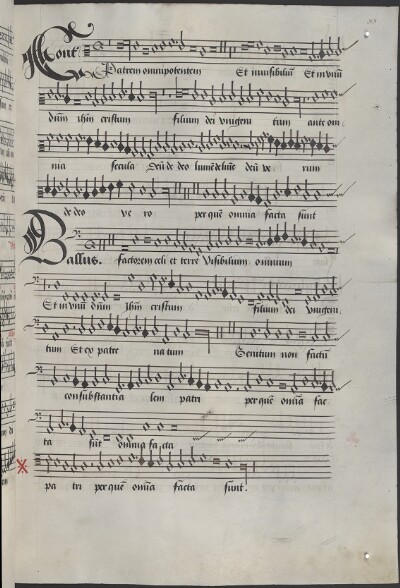 Cont
Patrem omnipotentem Et invisibiliũ Et in vnũ
dñm ihm cristum filium dei vnigeni tum ante om
nia secula Deũ de deo lumẽ de lumĩe deũ ve rum
de deo ve ro per quẽ omnia facta sunt
Bassus. factorem celi et terre Visibilium omnium
Et in vnũ dñm ihm cristum filium dei vnigeni
tum Et ex patre natum Genitum non factũ
consubstantia lem patri per quẽ omĩa fac
ta sũt omnia facta
pa tri per quẽ omĩa facta sunt.